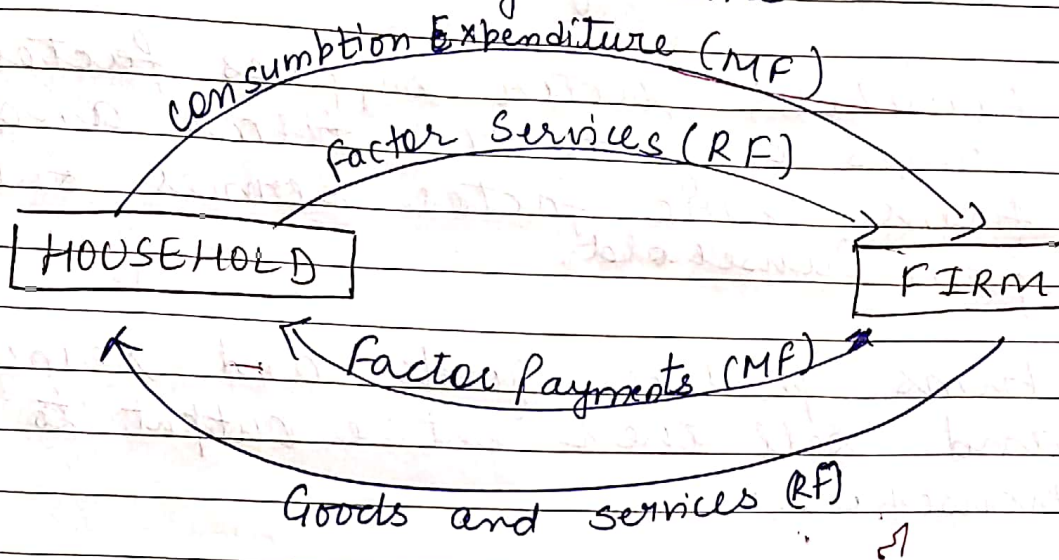 consumbtion Expenditure (MF)
factor Services (RF)
HOUSEHOLD
FIRM
Factor Payments (MF)
Goods and services (RF)